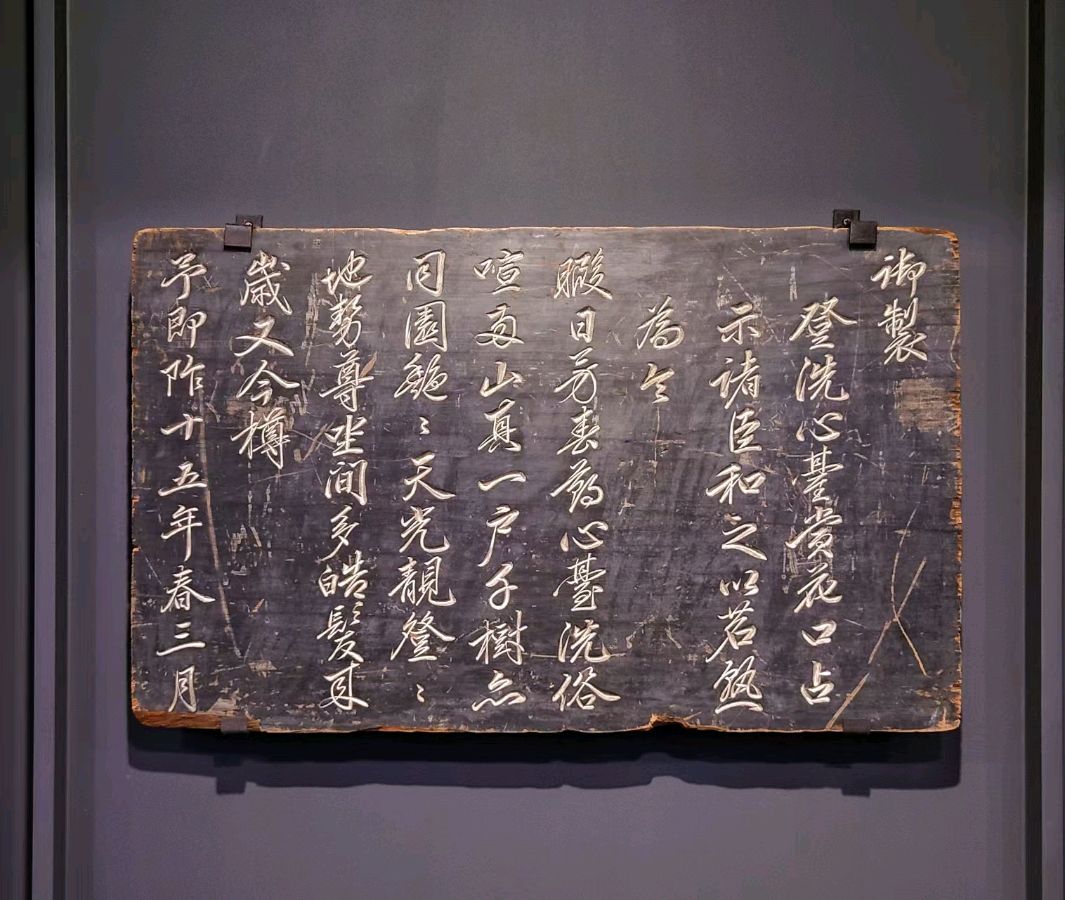 御製
登洗心臺賞花口占
示諸臣和之以茗熟
為令
暇日芳春葯心臺洗俗
喧兩山真一戶千樹亦
同園艷〻天光靚登〻
地勢尊坐间多皓髮来
歲又今樽
予即阼十五年春三月